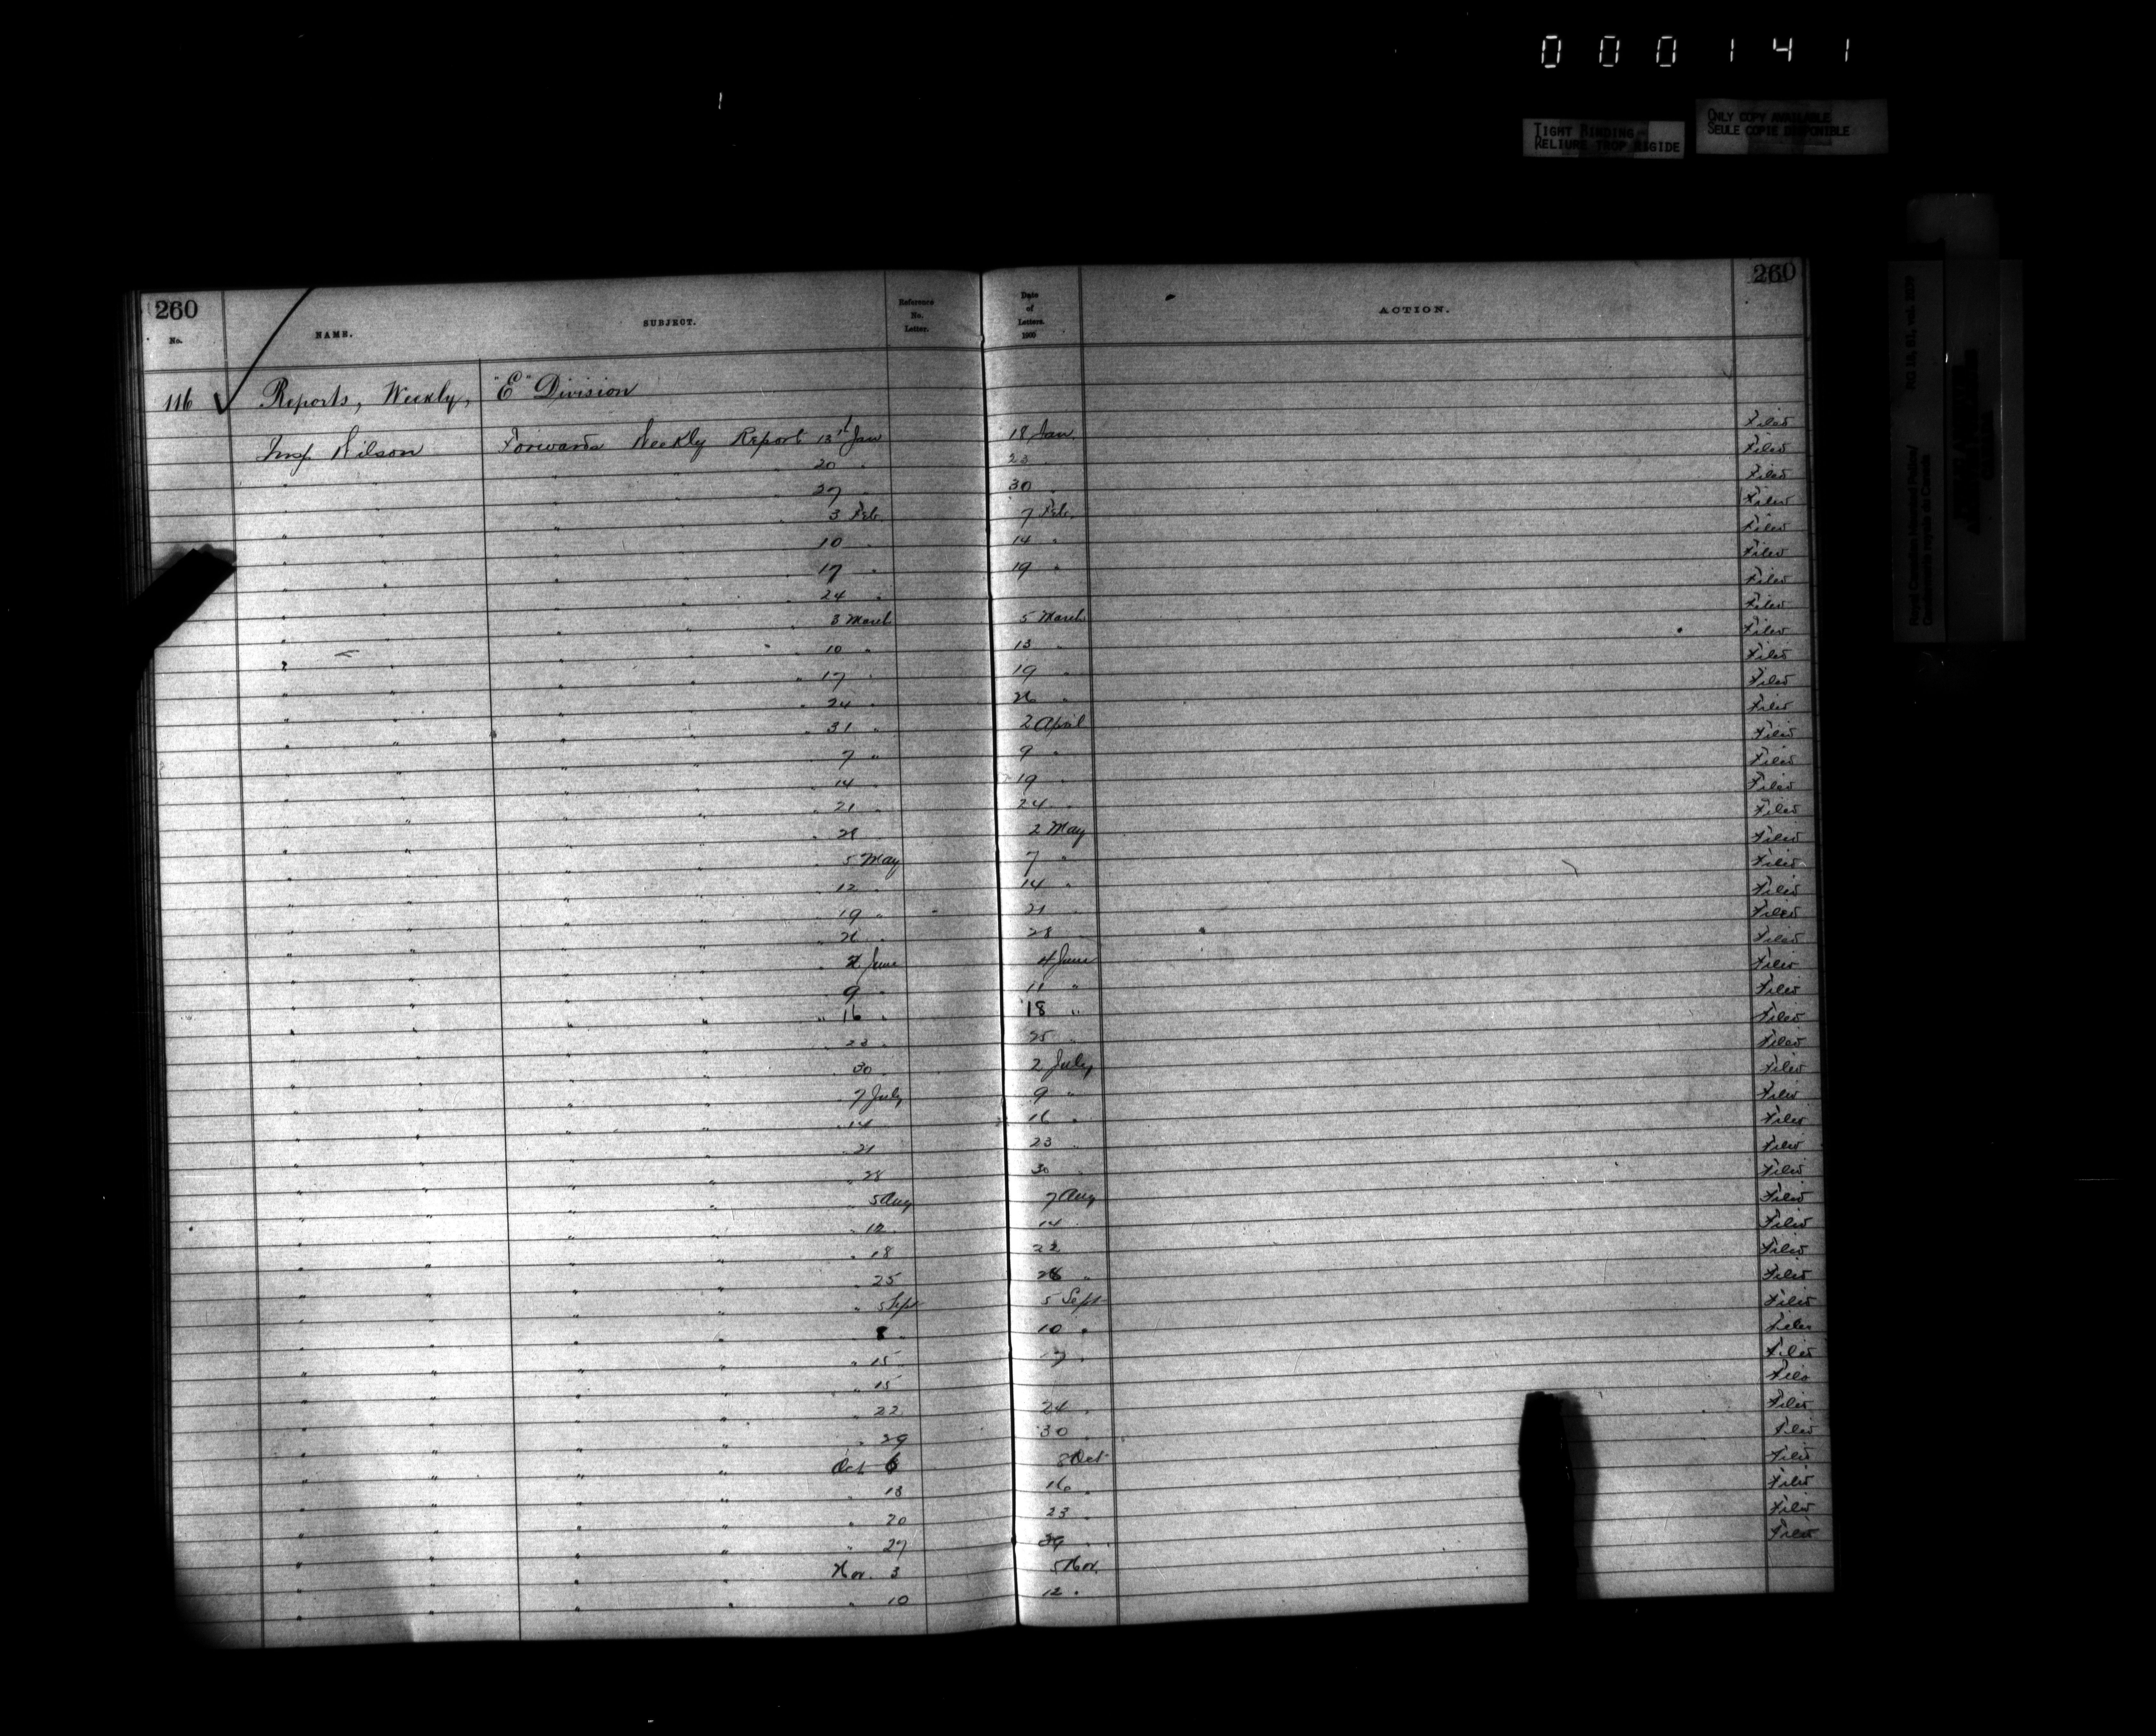 000141
TIGHT BINDING
RELIURE TROP RIGIDE
ONLY COPY AVAILABLE
SEULE COPIE DISPONIBLE
Royal Canadian Mounted Police/
Gendarmerie royale du Canada
260 260
No. NAME. SUBJECT. Reference No. Letter. Date of Letters. 1900 ACTION.
116 ✓ Reports, Weekly, "E" Division
Insp Wilson Forwards Weekly Report 13th Jan 18 Jan. Filed
" " " " " 20 " 23 Filed
" " " " " 27 " 30 " Filed
" " " " " 3 Feb. 7 Feb. Filed
" " " " " 10 " 14 " Filed
" " " " " 17 " 19 " Filed
" " " " " 24 " Filed
" " " " " 3 March 5 March Filed
" " " " " 10 " 13 " Filed
" " " " " 17 " 19 " Filed
" " " " " 24 " 26 " Filed
" " " " " 31 " 2 April Filed
" " " " 7 " 9 " Filed
" " " " 14 " 19 " Filed
" " " " " 21 " 24 " Filed
" " " " " 28 2 May Filed
" " " " " 5 May 7 " Filed
" " " " " 12 " 14 " Filed
" " " " " 19 " 21 " Filed
" " " " " 26 " 28 Filed
" " " " " 2 June 4 June Filed
" " " " 9 " 11 " Filed
" " " " " 16 " 18 " Filed
" " " " " 23 " 25 " Filed
" " " " " 30 " 2 July Filed
" " " " " 7 July 9 " Filed
" " " " " 14 16 " Filed
" " " " " 21 23 Filed
" " " " " 28 30 " Filed
" " " " " 5 Aug 7 Aug Filed
" " " " " 12 14 Filed
" " " " " 18 22 Filed
" " " " " 25 28 " Filed
" " " " " 5 Sept 5 Sept Filed
" " " " 8 " 10 " Filed
" " " " " 15 17 " Filed
" " " " " 15 Filed
" " " " " 22 24 " Filed
" " " " " 29 30 " Filed
" " " " Oct 6 8 Oct Filed
" " " " " 13 16 " Filed
" " " " " 20 23 " Filed
" " " " " 27 " Filed
" " " " Nov. 3 5 Nov.
" " " " " 10 12 "